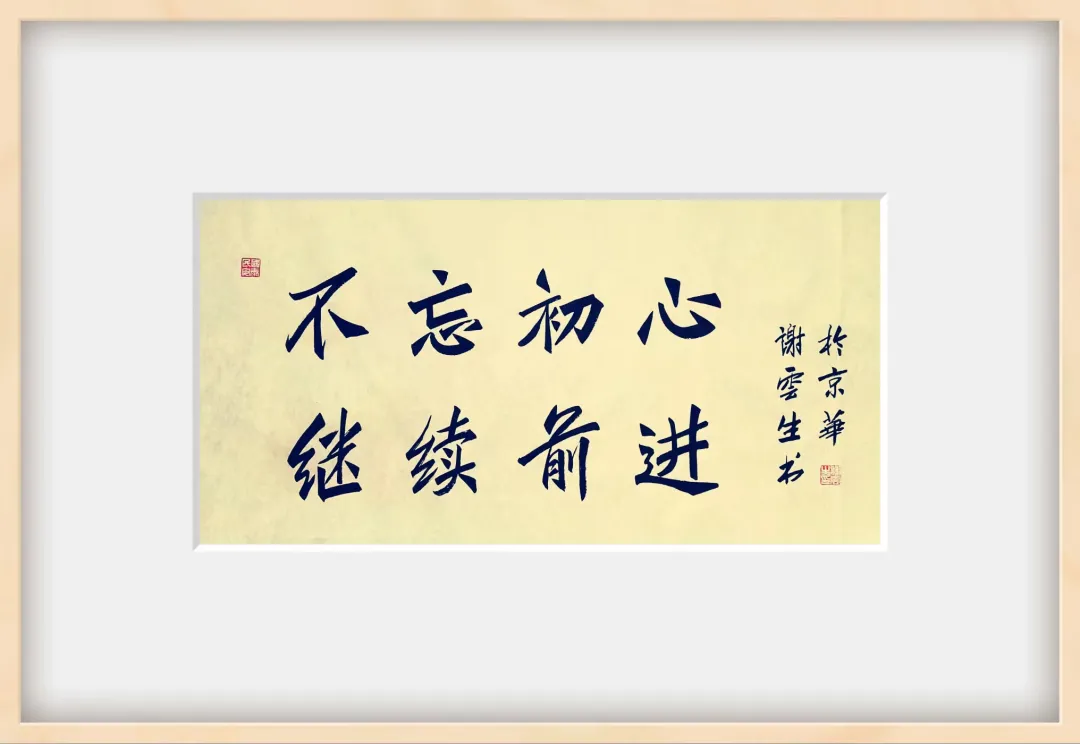 不忘初心
继续前进
谢雲生书
於京華